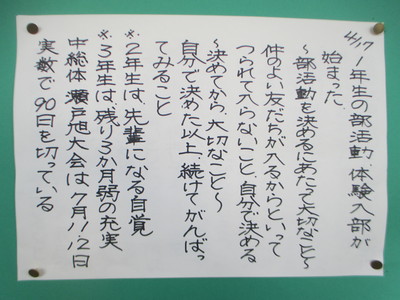 4/17 1年生の部活動、体験入部が
始まった。
〜部活動を決めるにあたって大切なこと〜
仲のよい友だちが入るからといって
つられて入らないこと、自分で決める
〜決めてから、大切なこと〜
自分で決めた以上、続けてがんばっ
てみること
※2年生は、先輩になる自覚
※3年生は、残り3か月弱の充実
中総体 瀬戸旭大会は7月1、2日
実数で90日を切っている